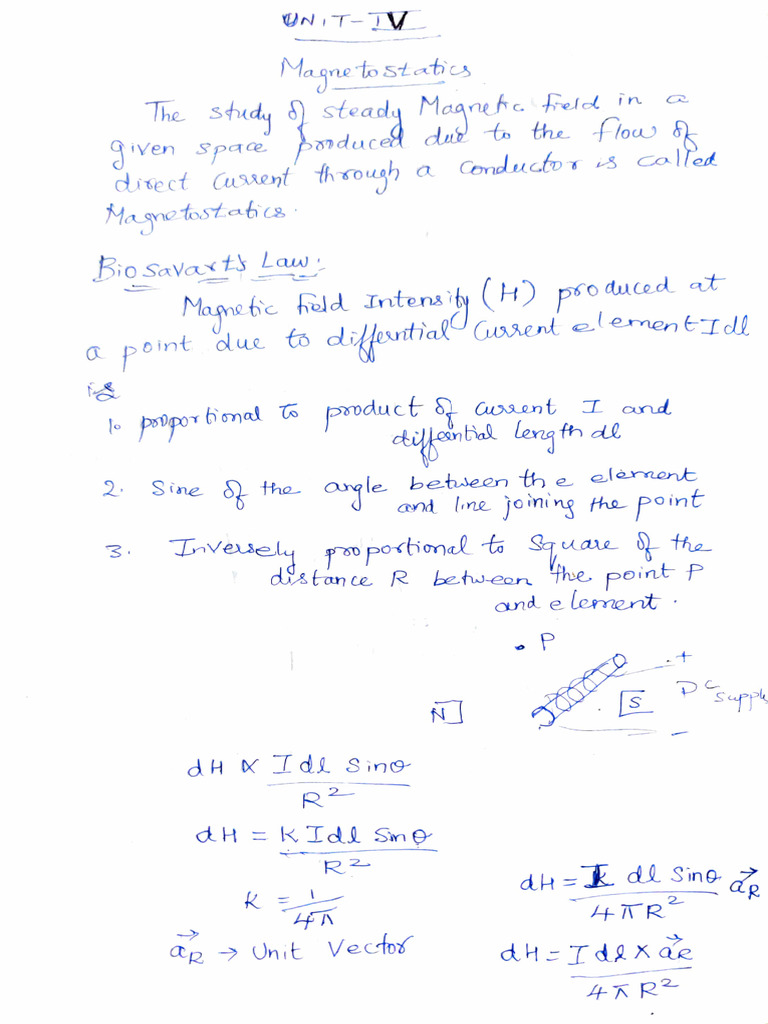 UNIT-IV
Magnetostatics
The study of steady Magnetic field in a
given space produced due to the flow of
direct current through a conductor is called
Magnetostatics.
Biosavarts Law:
Magnetic field Intensity (H) produced at
a point due to differntial current element Idl
is
1. proportional to product of current I and
differntial length dl
2. Sine of the angle between the element
and line joining the point
3. Inversely proportional to square of the
distance R between the point P
and element.
P
+
N
S
DC supply
-
dH ∝ Idl sinθ / R²
dH = k Idl sinθ / R²
k = 1 / 4π
a⃗R → Unit Vector
dH = I dl sinθ / 4πR² a⃗R
dH = I dl × a⃗R / 4πR²